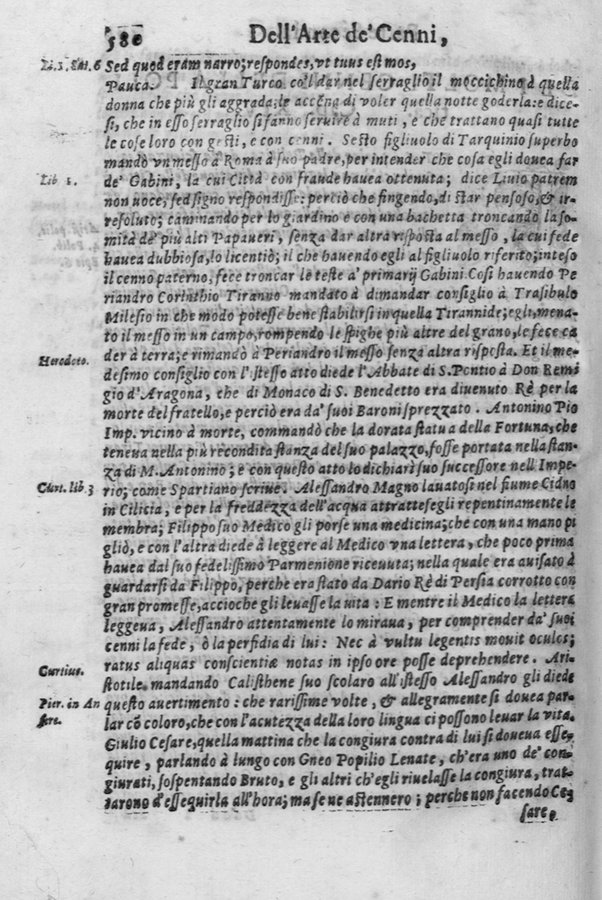 580 Dell'Arte de' Cenni,
Li. 3. Sat. 6 Sed quod eram narro; respondes, vt tuus est mos,
Pauca. Il gran Turco co'l dar nel serraglio il moccichino à quella
donna che più gli aggrada; le accēna di voler quella notte goderla: e dice-
si, che in esso serraglio si fanno seruire à muti, e che trattano quasi tutte
le cose loro con gesti, e con cenni. Sesto figliuolo di Tarquinio superbo
mandò vn messo à Roma à suo padre, per intender che cosa egli douea far
Lib 1. de' Gabini, la cui Città con fraude hauea ottenuta; dice Liuio patrem
non uoce, sed signo respondisse: perciò che fingendo, di star pensoso, & ir-
resoluto; caminando per lo giardino e con una bachetta troncando la so-
mità de' più alti Papaueri, senza dar altra risposta al messo, la cui fede
hauea dubbiosa, lo licentiò; il che hauendo egli al figliuolo riferito; inteso
il cenno paterno, fece troncar le teste a' primarij Gabini. Così hauendo Pe
riandro Corinthio Tiranno mandato à dimandar consiglio à Trasibulo
Milesio in che modo potesse bene stabilirsi in quella Tirannide; egli, mena-
to il messo in un campo, rompendo le spighe più altre del grano, le fece ca
Herodoto. der à terra; e rimandò à Periandro il messo senza altra risposta. Et il me-
desimo consiglio con l'istesso atto diede l'Abbate di S. Pontio à Don Remi
gio d'Aragona, che di Monaco di S. Benedetto era diuenuto Rè per la
morte del fratello, e perciò era da' suoi Baroni sprezzato. Antonino Pio
Imp. vicino à morte, commandò che la dorata statua della Fortuna, che
teneua nella più recondita stanza del suo palazzo, fosse portata nella stan-
za di M. Antonino; e con questo atto lo dichiarò suo successore nell'Impe-
Curt. lib. 3 rio; come Spartiano scriue. Alessandro Magno lauatosi nel fiume Cidno
in Cilicia, e per la freddezza dell'acqua attrattesegli repentinamente le
membra; Filippo suo Medico gli porse una medicina; che con una mano pi
gliò, e con l'altra diede à leggere al Medico vna lettera, che poco prima
hauea dal suo fedelissimo Parmenione riceuuta; nella quale era auisato à
guardarsi da Filippo, perche era stato da Dario Rè di Persia corrotto con
gran promesse, accioche gli leuasse la uita: E mentre il Medico la lettera
leggeua, Alessandro attentamente lo miraua, per comprender da' suoi
cenni la fede, ò la perfidia di lui: Nec à vultu legentis mouit oculos;
ratus aliquas conscientiæ notas in ipso ore posse deprehendere. Ari-
Curtius. stotile mandando Calisthene suo scolaro all'istesso Alessandro gli diede
Pier. in An questo auertimento: che rarissime volte, & allegramente si douea par-
sere. lar cō coloro, che con l'acutezza della loro lingua ci possono leuar la vita.
Giulio Cesare, quella mattina che la congiura contra di lui si doueua esse-
quire, parlando à lungo con Gneo Popilio Lenate, ch'era uno de' con-
giurati, sospentando Bruto, e gli altri ch'egli riuelasse la congiura, trat-
tarono d'essequirla all'hora; ma se ne astennero; perche non facendo Ce-
sare,